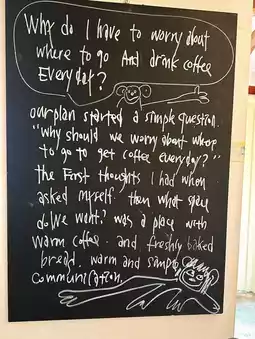 Why do I have to worry about
where to go And drink coffee
Everyday?
our plan started a simple question.
"why should we worry about where
to go to get coffee everyday?"
the First thoughts I had when
asked myself. then what
do we want? was a place with
warm coffee. and freshly baked
bread. warm and simple
communication.